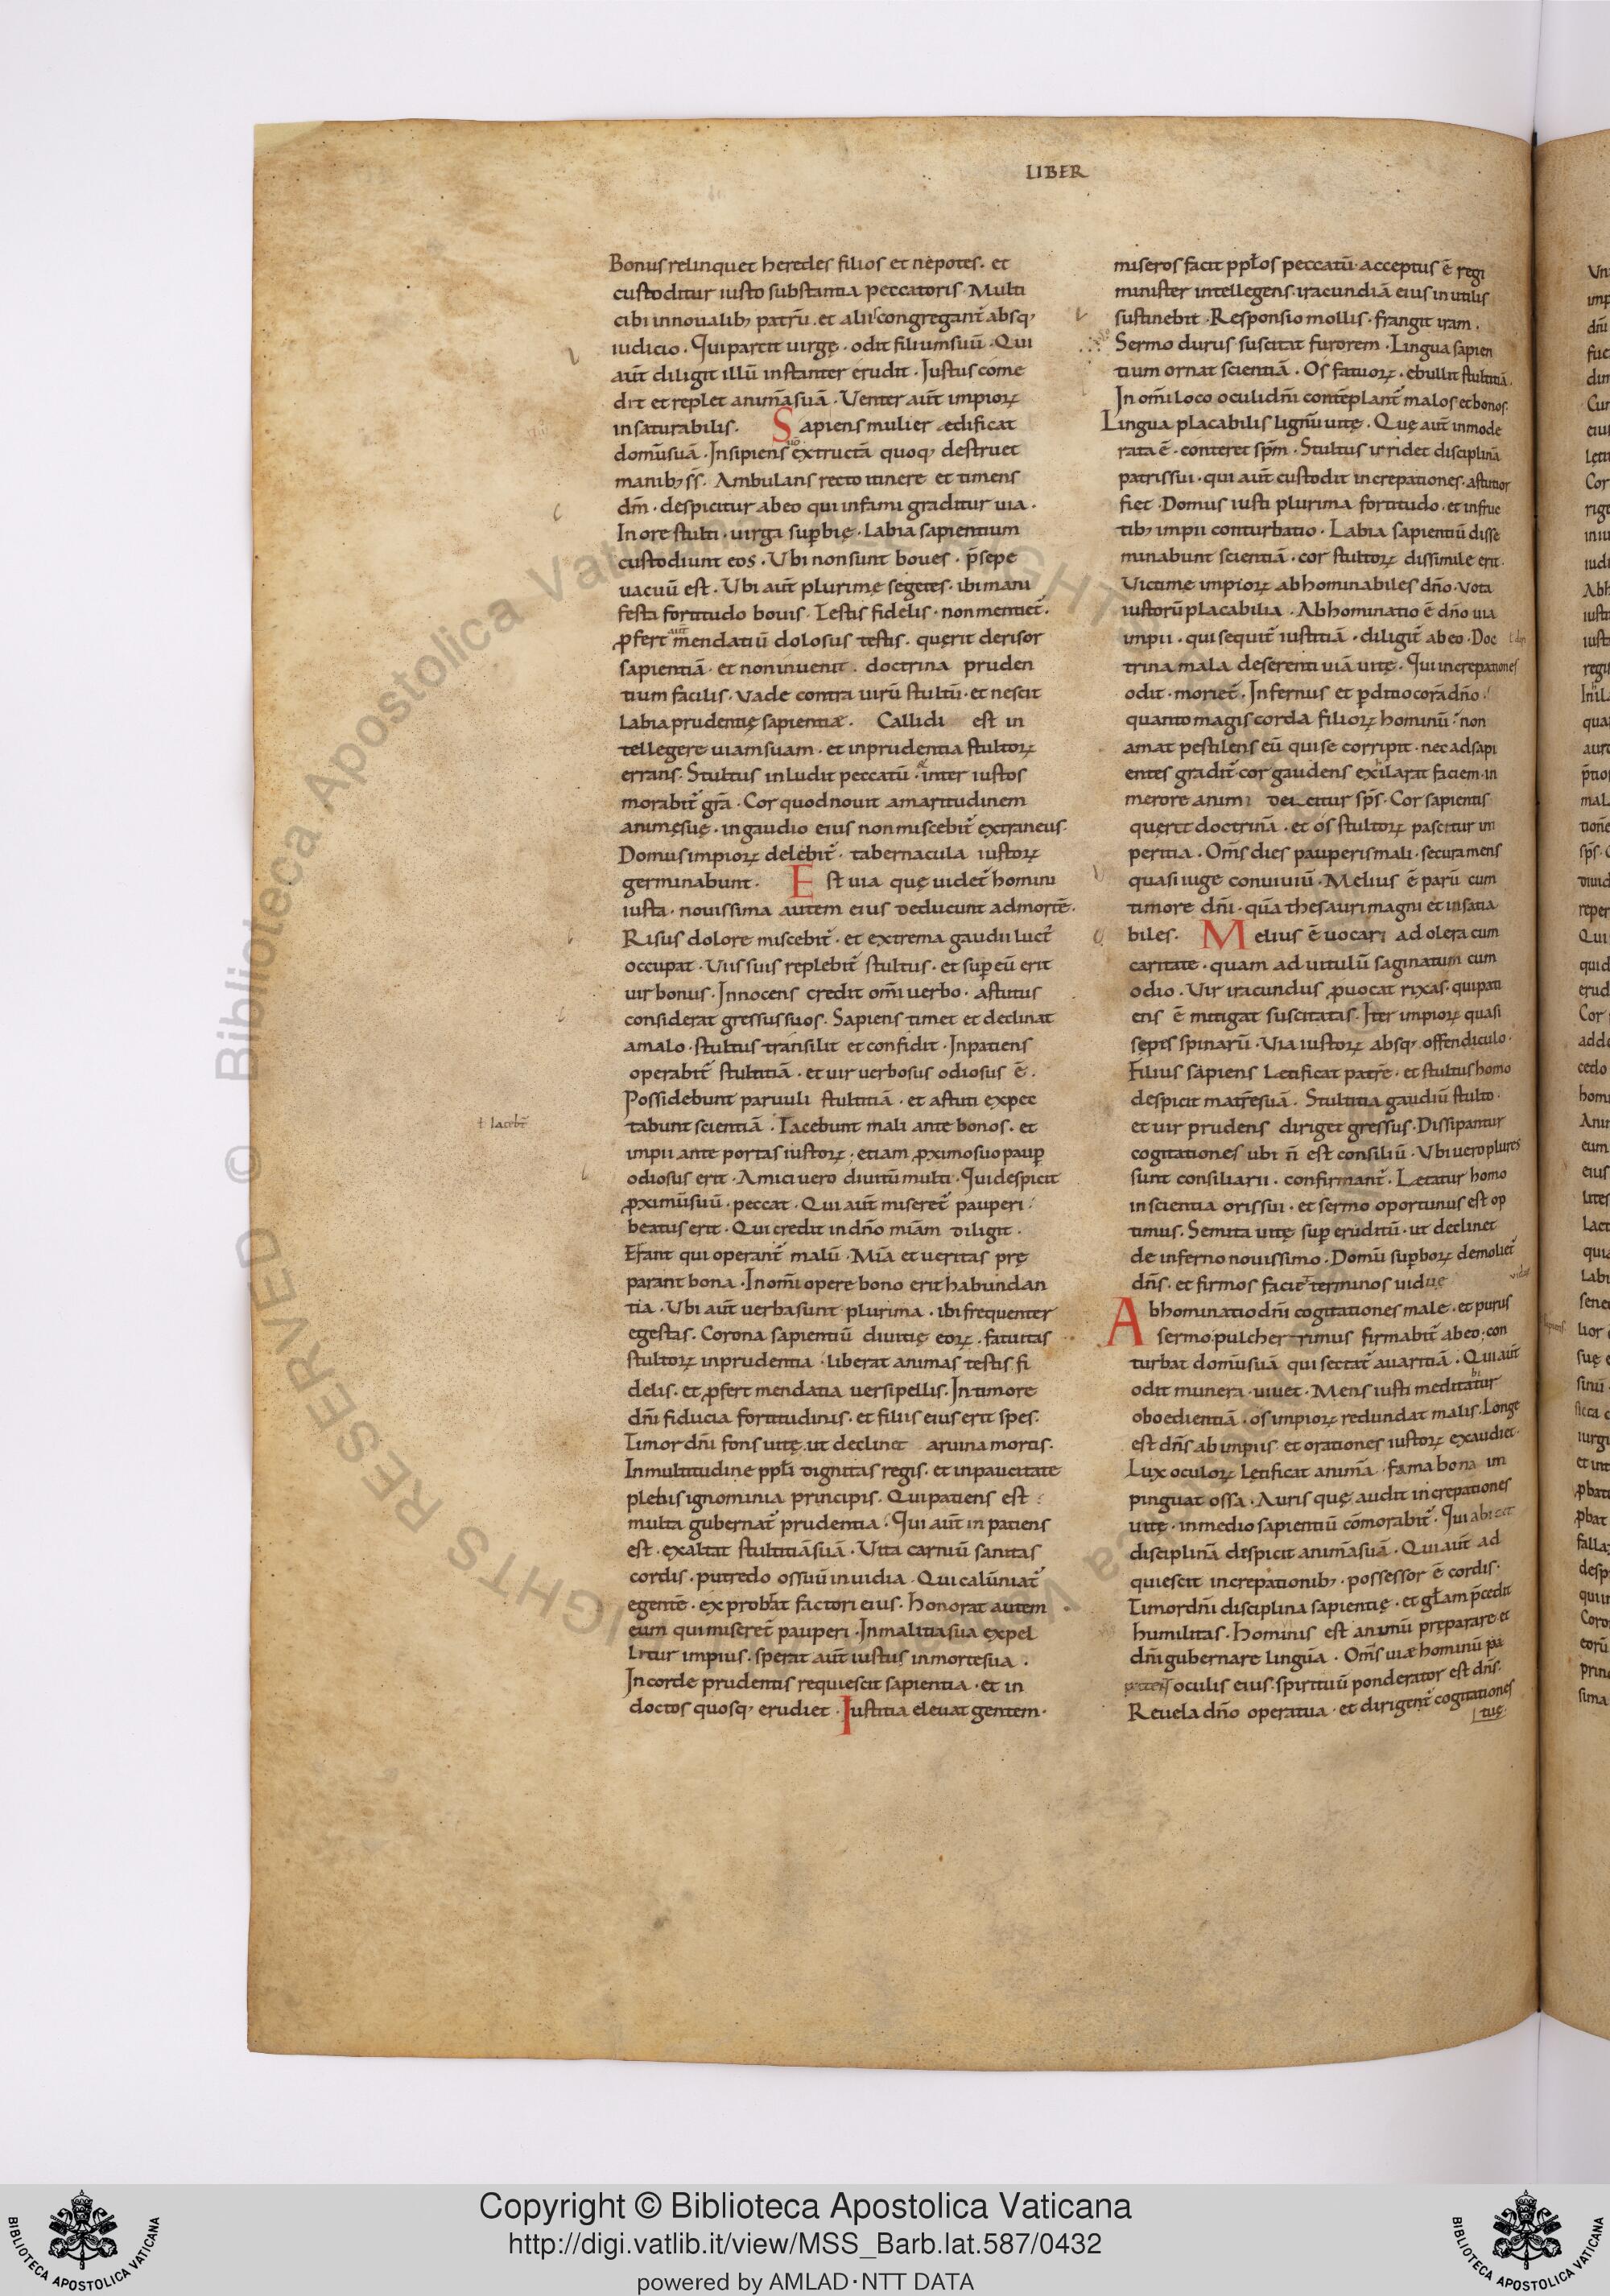 LIBER
Bonus relinquet heredes filios et nepotes. et
custoditur iusto substantia peccatoris. Multi
cibi in noualib; patrū. et alii congregant᷑ absq;
iudicio. Qui parcit uirgę. odit filium suū. Qui
aut̄ diligit illū instanter erudit. Iustus come
dit et replet animā suā. Venter aut̄ impioꝝ
insaturabilis. Sapiens mulier ædificat
domū suā. Insipiens extructā quoq; destruet
manib; s̄s̄. Ambulans recto itinere et timens
dm̄. despicitur ab eo qui infami graditur uia.
In ore stulti. uirga suꝑbię. Labia sapientium
custodiunt eos. Vbi non sunt boues. p̄sepe
uacuū est. Vbi aut̄ plurimę segetes. ibi mani
festa fortitudo bouis. Testis fidelis. non mentiet᷑.
ꝓfert aut̄ mendatiū dolosus testis. querit derisor
sapientiā. et non inuenit. doctrina pruden
tium facilis. Vade contra uirū stultū. et nescit
labia prudentię sapientiæ. Callidi est in
tellegere uiam suam. et inprudentia stultoꝝ
errans. Stultus inludit peccatū. & inter iustos
morabit᷑ gr̄a. Cor quod nouit amaritudinem
animę suę. in gaudio eius non miscebit᷑ extraneus.
Domus impioꝝ delebit᷑. tabernacula iustoꝝ
germinabunt. Est uia quę uidet᷑ homini
iusta. nouissima autem eius deducunt ad mortē.
Risus dolore miscebit᷑. et extrema gaudii luct᷑
occupat. Viis suis replebit᷑ stultus. et suꝑ eū erit
uir bonus. Innocens credit om̄i uerbo. astutus
considerat gressus suos. Sapiens timet et declinat
a malo. stultus transilit et confidit. Inpatiens
operabit᷑ stultitiā. et uir uerbosus odiosus ē.
Possidebunt paruuli stultitiā. et astuti expec
tabunt scientiā. Iacebunt mali ante bonos. et
impii ante portas iustoꝝ. etiam ꝓximo suo pauꝑ
odiosus erit. Amici uero diuitū multi. Qui despicit
ꝓximū suū. peccat. Qui aut̄ miseret᷑ pauperi
beatus erit. Qui credit in dn̄o miām diligit.
Errant qui operant᷑ malū. Mia̅ et ueritas prę
parant bona. In om̄i opere bono erit habundan
tia. Vbi aut̄ uerba sunt plurima. ibi frequenter
egestas. Corona sapientiū diuitię eoꝝ. fatuitas
stultoꝝ inprudentia. liberat animas testis fi
delis. et ꝓfert mendatia uersipellis. In timore
dn̄i fiducia fortitudinis. et filiis eius erit spes.
Timor dn̄i fons uitę. ut declinet a ruina mortis.
In multitudine ppl̄i dignitas regis. et in paucitate
plebis ignominia principis. Qui patiens est
multa gubernat᷑ prudentia. Qui aut̄ inpatiens
est. exaltat stultitiā suā. Vita carniū sanitas
cordis. putredo ossuū inuidia. Qui calūniat᷑
egentē. exprobrat factori eius. honorat autem
eum qui miseret᷑ pauperi. In malitia sua expel
litur impius. sperat aut̄ iustus in morte sua.
In corde prudentis requiescit sapientia. et in
doctos quosq; erudiet. Iustitia eleuat gentem.
miseros facit ppl̄os peccatū. acceptus ē regi
minister intellegens. iracundiā eius inutilis
sustinebit. Responsio mollis. frangit iram.
Sermo durus suscitat furorem. Lingua sapien
tium ornat scientiā. Os fatuoꝝ. ebullit stultitiā.
In om̄i loco oculi dn̄i contēplant᷑ malos et bonos.
Lingua placabilis lignū uitę. Quę aut̄ inmode
rata ē. conteret sp̄m. Stultus irridet disciplinā
patris sui. qui aut̄ custodit increpationes. astutior
fiet. Domus iusti plurima fortitudo. et in fruc
tib; impii conturbatio. Labia sapientiū disse
minabunt scientiā. cor stultoꝝ dissimile erit.
Victimę impioꝝ abhominabiles dn̄o. vota
iustorū placabilia. Abhominatio ē dn̄o uia
impii. qui sequit᷑ iustitiā. diligit᷑ ab eo. Doc
trina mala deserenti uiā uitę. Qui increpationes
odit. moriet᷑. Infernus et ꝑditio corā dn̄o.
quanto magis corda filioꝝ hominū. non
amat pestilens eū qui se corripit. nec ad sapi
entes gradit᷑. cor gaudens exhilarat faciem. in
merore animi deicitur sp̄s. Cor sapientis
querit doctrinā. et os stultoꝝ pascitur im
peritia. Om̄s dies pauperis mali. secura mens
quasi iuge conuiuiū. Melius ē parū cum
timore dn̄i. quā thesauri magni et insatia
biles. Melius ē uocari ad olera cum
caritate. quam ad uitulū saginatum cum
odio. Vir iracundus ꝓuocat rixas. qui pati
ens ē mitigat suscitatas. Iter impioꝝ quasi
sepis spinarū. Via iustoꝝ absq; offendiculo.
Filius sapiens Letificat patrē. et stultus homo
despicit matrē suā. Stultitia gaudiū stulto.
et uir prudens diriget gressus. Dissipantur
cogitationes ubi n̄ est consiliū. Vbi uero plures
sunt consiliarii. confirmant᷑. Letatur homo
in scientia oris sui. et sermo oportunus est op
timus. Semita uitę suꝑ eruditū. ut declinet
de inferno nouissimo. Domū suꝑboꝝ demoliet᷑
dn̄s. et firmos faciet terminos uiduę
Abhominatio dn̄i cogitationes male. et purus
sermo pulcherrimus firmabit᷑ ab eo. con
turbat domū suā qui sectat᷑ auaritiā. Qui aut̄
odit munera. uiuet. Mens iusti meditatur
oboedientiā. os impioꝝ redundat malis. Longe
est dn̄s ab impiis et orationes iustoꝝ exaudiet.
Lux oculoꝝ lętificat animā. fama bona im
pinguat ossa. Auris quę audit increpationes
uitę. in medio sapientiū cōmorabit᷑. Qui abicit
disciplinā despicit animā suā. Qui aut̄ ad
quiescit increpationib; possessor ē cordis.
Timor dn̄i disciplina sapientię. et gl̄am p̄cedit
humilitas. Hominis est animū pręparare et
dn̄i gubernare linguā. Om̄s uiæ hominū pa
oculis eius. spirituū ponderator est dn̄s.
Reuela dn̄o opera tua. et dirigent᷑ cogitationes
tuę.
Copyright © Biblioteca Apostolica Vaticana
http://digi.vatlib.it/view/MSS_Barb.lat.587/0432
powered by AMLAD·NTT DATA
BIBLIOTECA APOSTOLICA VATICANA
BIBLIOTECA APOSTOLICA VATICANA